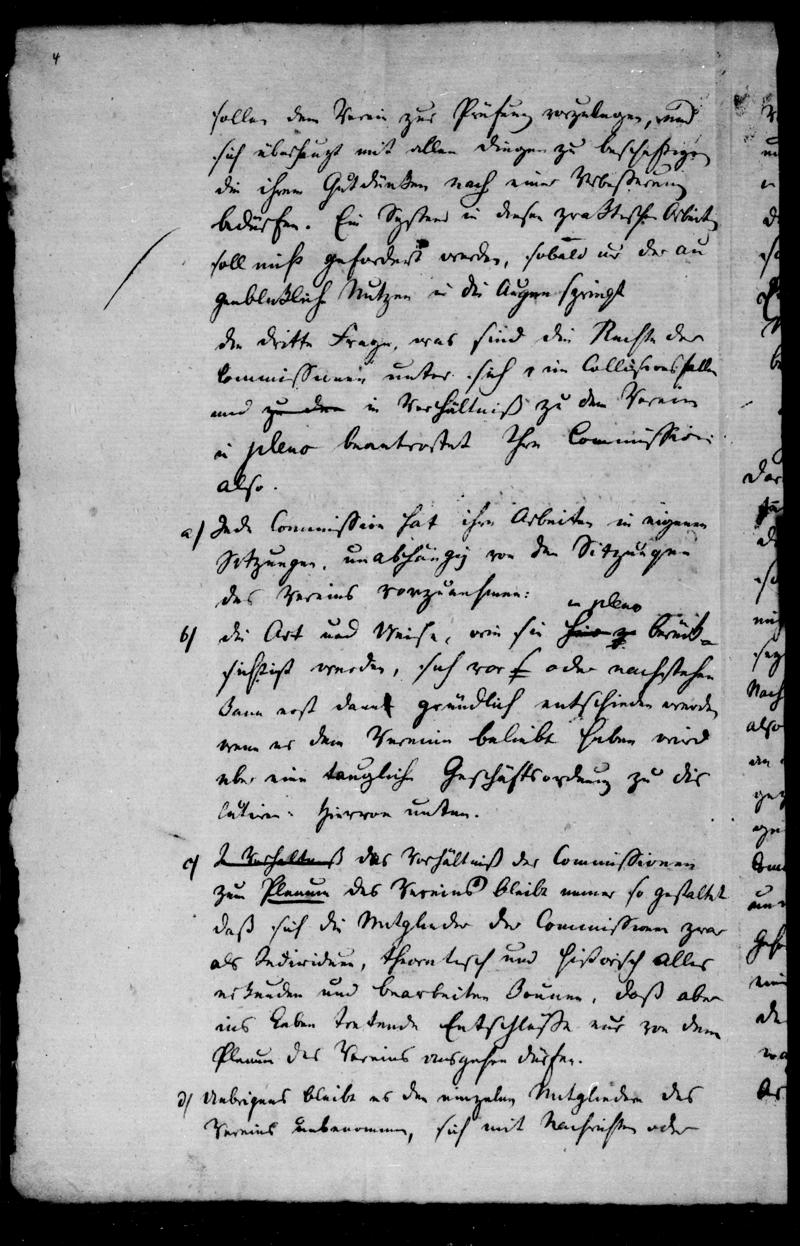 4
sollen dem Verein zur Prüfung vorzulegen, und
sich überhaupt mit allen Dingen zu beschäftigen
die ihrem Gutdünken nach einer Verbesserung
bedürfen. Ein System in diesen praktischen Arbeiten
soll nicht gefordert werden, sobald nur der au
genblickliche Nutzen in die Augen springt
die dritte Frage, was sind die Rechte der
Commissionen unter sich im Collisionsfalle
und zu den in Verhältniß zu dem Verein
in pleno beantwortet Ihre Commission
also.
a) Jede Commission hat ihre Arbeiten in eigenen
Sitzungen, unabhängig von den Sitzungen
des Vereins vorzunehmen:
in pleno
b) die Art und Weise, wie sie berück-
sichtigt werden, sich vor oder nachstehen
kann erst dann gründlich entschieden werden
wenn es dem Vereine beliebt haben wird
über eine taugliche Geschäftsordnung zu dis
cutiren. Hiervon unten.
c) Verhältniß das Verhältniß der Commissionen
zum Plenum des Vereins bleibt immer so gestaltet
daß sich die Mitglieder der Commissionen zwar
als Individuen, theoretisch und historisch alles
erkunden und bearbeiten können, daß aber
ins Leben tretende Entschlüsse nur von dem
Plenum des Vereins ausgehen dürfen.
d) Uebrigens bleibt es den einzelnen Mitgliedern des
Vereins unbenommen, sich mit Nachrichten oder